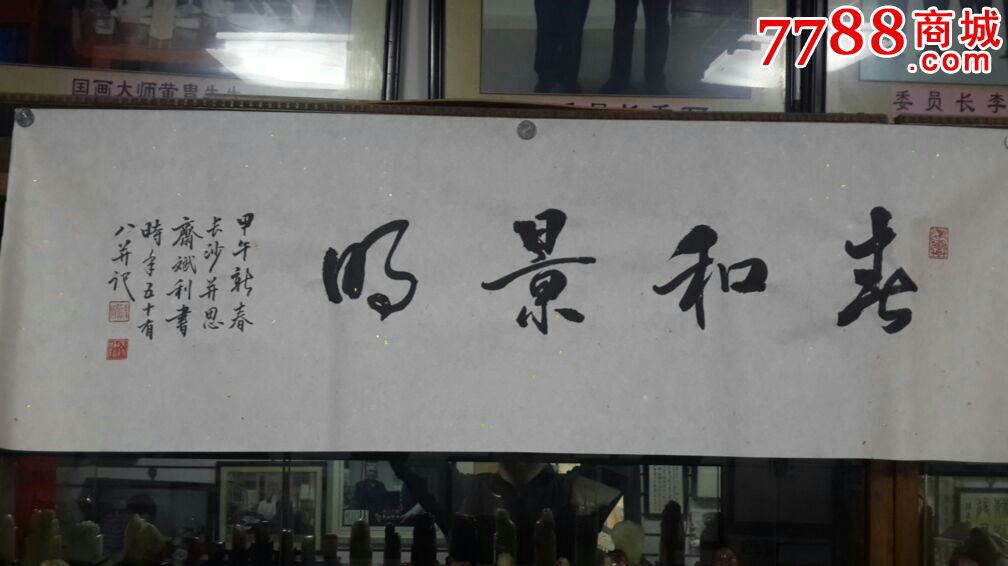 7788商城
国画大师黄胄先生
委员长李
春和景明
甲午新春
长沙并思
齋斌利書
時年五十有
八并记